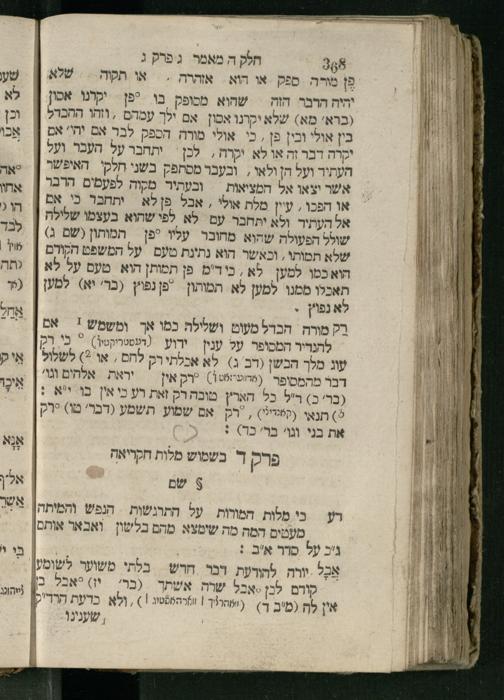 368
חלק ה מאמר ג פרק ג
פֶן מורה ספק או הוא אזהרה , או תקוה שלא
יהיה הדבר הזה שהוא מסופק בו °פן יקרנו אסון
(ברא׳ מא) שלא יקרנו אסון אם ילך עמהם , וזהו ההבדל
בין אולי ובין פן , כי אולי מורה הספק לבד אם יהי׳ אם
יקרה דבר זה או לא יקרה , לכן יתחבר על העבר ועל
העתיד ועל הן ולאו , ובעבר מסתפק בשני חלקי האיפשר
אשר יצאו אל המציאות ובעתיד מקוה לפעמים הדבר
או הפכו , עיין מלת אולי , אבל פן לא יתחבר כי אם
אל העתיד ולא יתחבר עם לא לפי שהוא בעצמו שלילה
שולל הפעולה שהוא מחובר עליו °פן תמותון (שם ג)
שלא תמותו , וכאשר הוא נתינת טעם על המשפט הקודם
הוא כמו למען לא , כי ד״מ פן תמותון הוא טעם על לא
תאכלו ממנו למען לא תמותון °פן נפוץ (בר׳ יא) למען
לא נפוץ .
רַק מורה הבדל מעוט ושלילה כמו אך ומשמש 1 אם
להגדיר המסופר על ענין ידוע (רעסטריקטיו) ° כי רק
עוג מלך הבשן (דב׳ ג) לא אכלתי רק לחם , או 2) לשלול
דבר מהמסופר °רק אין יראת אלהים וגו׳
(בר׳ כ) ר״ל כל הארץ טובה רק זאת רע כי אין בו י״א :
3) תנאי , °רק אם שמוע תשמע (דבר׳ טו) °רק
את בני וגו׳ בר׳ כד) :
פרק ד בשמוש מלות הקריאה
§ שם
דע כי מלות המורות על התרגשות הנפש והמיתה
מעטים המה מה שימצא מהם בלשון ואבאר אותם
ג״כ על סדר א״ב :
אֲבָל יורה להודעת דבר חדש בלתי משוער לשומע
קודם לכן °אבל שרה אשתך (בר׳ יז) °אבל בן
אין לה (מ״ב ד) , ולא כדעת הרד״ק
שענינו